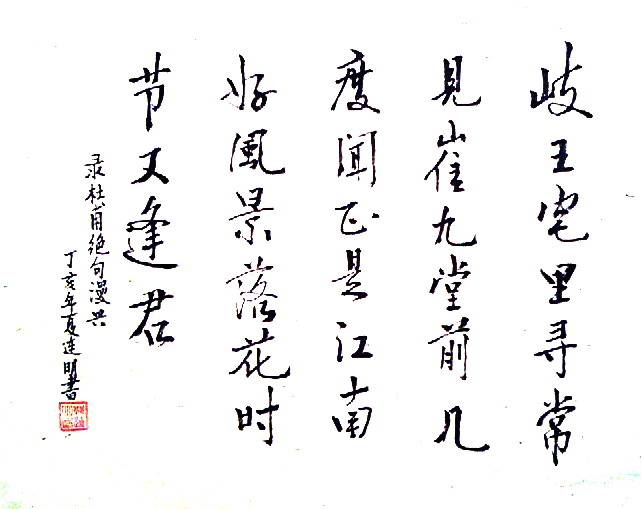 岐王宅里寻常
見崔九堂前几
度闻正是江南
好風景落花时
节又逢君
录杜甫绝句漫兴
丁亥年夏连明書